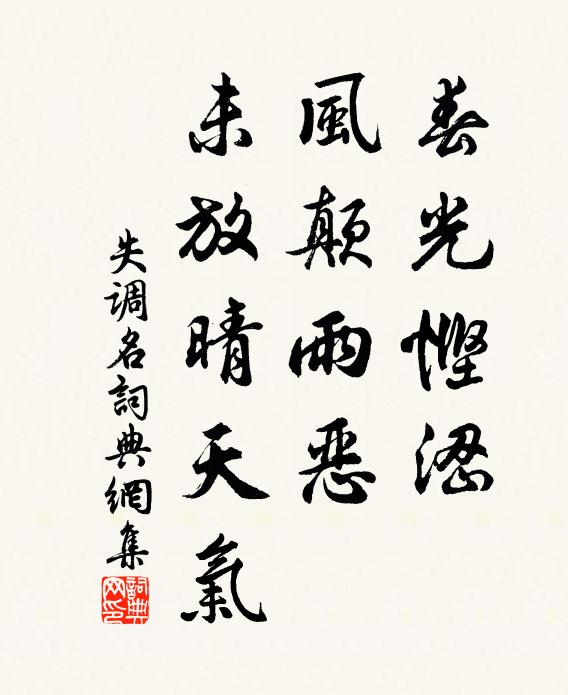 春光慳澀
風顛雨惡
未放晴天氣
失調名詞典網集
詞典
网印